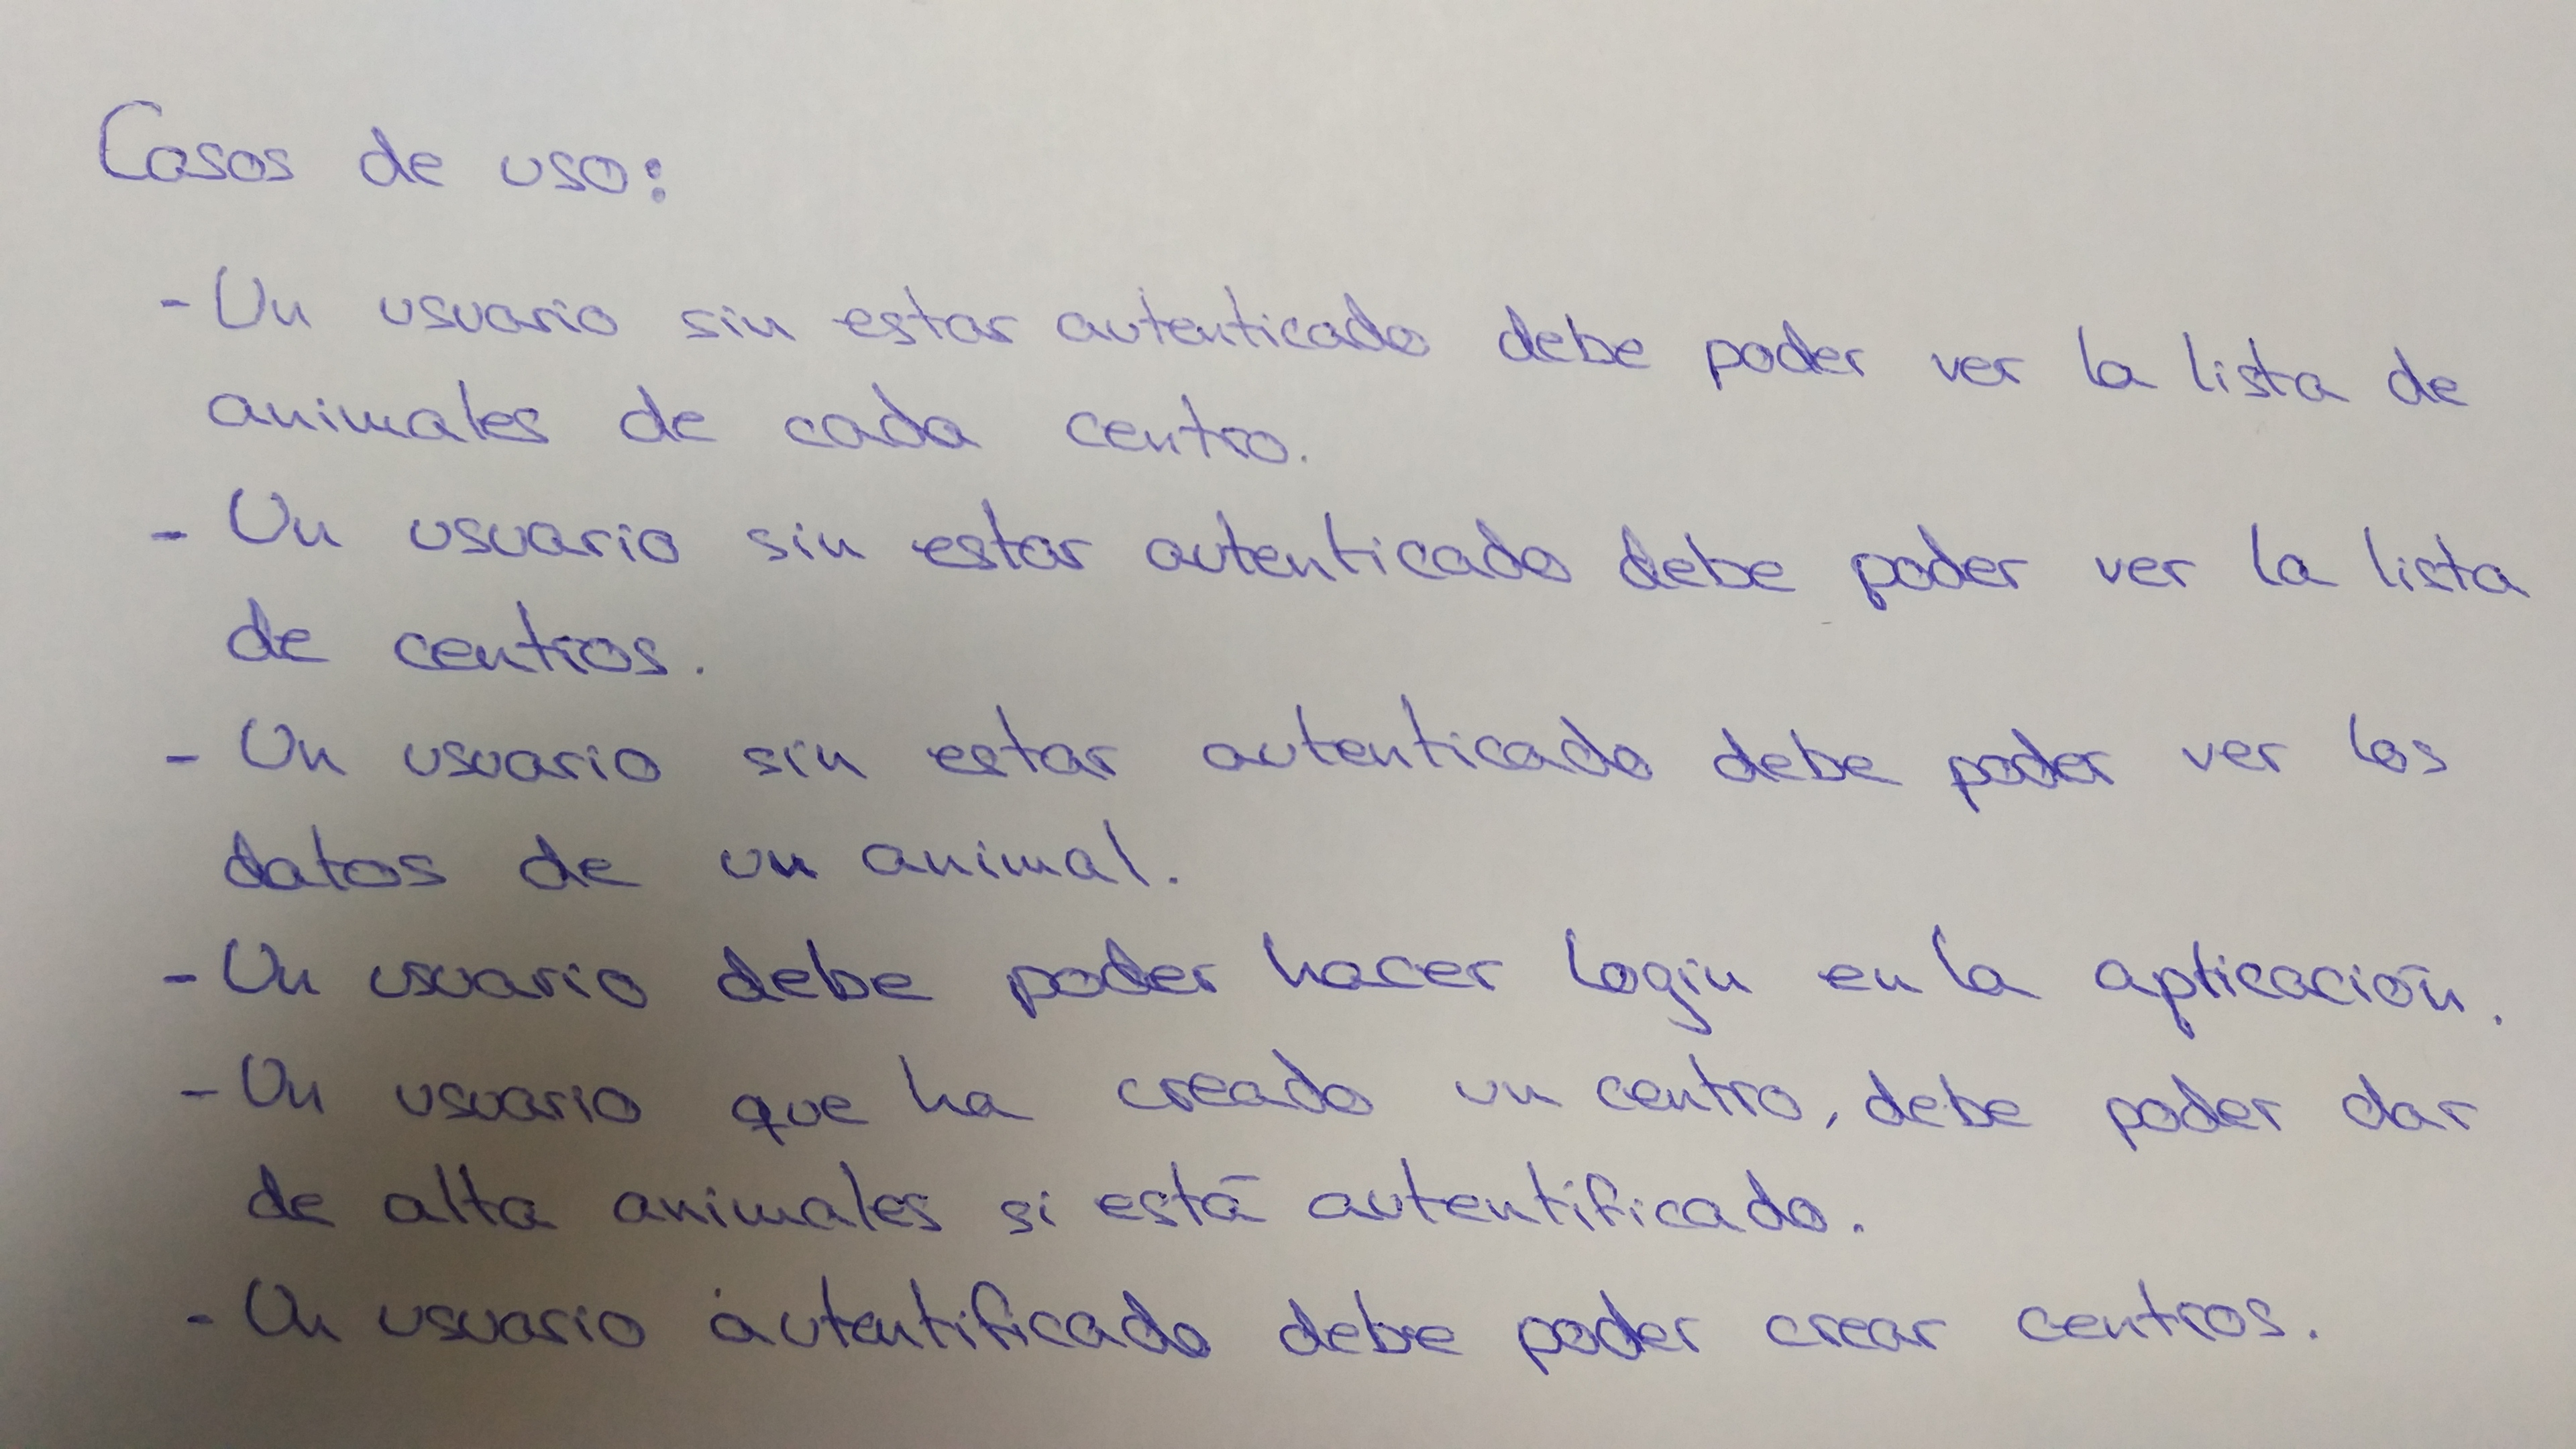 Casos de uso:
- Un usuario sin estar autenticado debe poder ver la lista de
animales de cada centro.
- Un usuario sin estar autenticado debe poder ver la lista
de centros.
- Un usuario sin estar autenticado debe poder ver los
datos de un animal.
- Un usuario debe poder hacer login en la aplicación.
- Un usuario que ha creado un centro, debe poder dar
de alta animales si está autentificado.
- Un usuario autentificado debe poder crear centros.